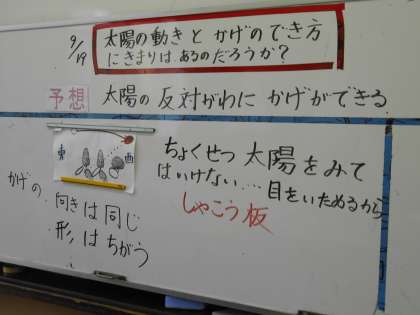 9/19
太陽の動きと かげのでき方
にきまりは あるのだろうか？
予想 太陽の反対がわに かげができる
東 西
ちょくせつ 太陽をみて
はいけない… 目をいためるから
しゃこう板
かげの
向きは同じ
形は ちがう